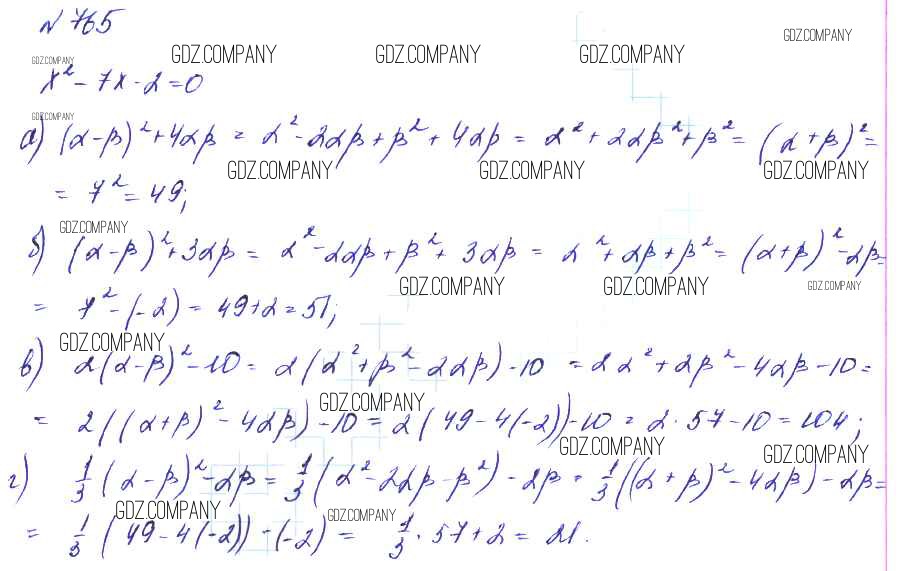 № 765
GDZ.COMPANY GDZ.COMPANY GDZ.COMPANY GDZ.COMPANY GDZ.COMPANY
x² - 7x - 2 = 0
GDZ.COMPANY
а) (α-β)² + 4αβ = α² - 2αβ + β² + 4αβ = α² + 2αβ² + β² = (α+β)² =
GDZ.COMPANY GDZ.COMPANY GDZ.COMPANY
= 7² = 49;
GDZ.COMPANY
б) (α-β)² + 3αβ = α² - 2αβ + β² + 3αβ = α² + αβ + β² = (α+β)² - αβ =
GDZ.COMPANY GDZ.COMPANY GDZ.COMPANY
= 7² - (-2) = 49 + 2 = 51;
GDZ.COMPANY
в) 2(α-β)² - 10 = 2(α² + β² - 2αβ) - 10 = 2α² + 2β² - 4αβ - 10 =
GDZ.COMPANY
= 2((α+β)² - 4αβ) - 10 = 2(49 - 4(-2)) - 10 = 2 · 57 - 10 = 104;
GDZ.COMPANY GDZ.COMPANY
г) 1/3 (α-β)² - αβ = 1/3 (α² - 2αβ - β²) - αβ = 1/3 ((α+β)² - 4αβ) - αβ =
GDZ.COMPANY GDZ.COMPANY
= 1/3 (49 - 4(-2)) - (-2) = 1/3 · 57 + 2 = 21.